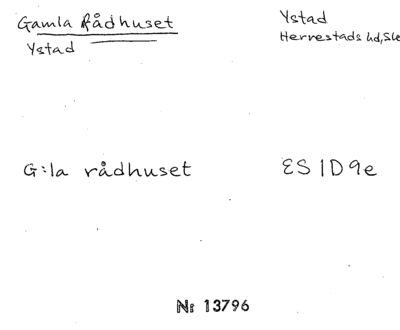 Gamla Rådhuset
Ystad
Ystad
Herrestads hd, Sk
G:la rådhuset
ES 1D9e
Nr 13796